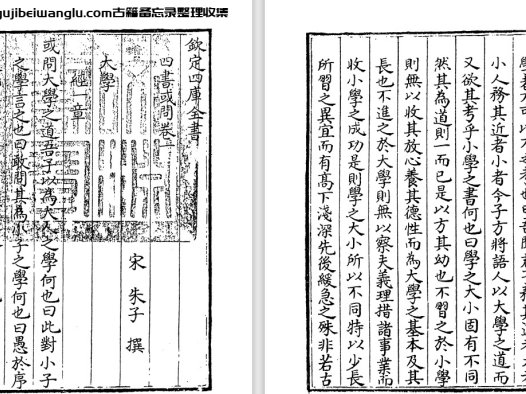 gujibeiwanglu.com古籍备忘录整理收集
欽定四庫全書
四書或問卷一
宋 朱子 撰
大學
經一章
或問大學之道吾子以為大人之學何也曰此對小子
之學言之也曰敢問其為小子之學何也曰愚於序
小人務其近者小者今子方將語人以大學之道而
又欲其考乎小學之書何也曰學之大小固有不同
然其為道則一而已是以方其幼也不習之於小學
則無以收其放心養其德性而為大學之基本及其
長也不進之於大學則無以察夫義理措諸事業而
收小學之成功是則學之大小所以不同特以少長
所習之異宜而有髙下淺深先後緩急之殊非若古